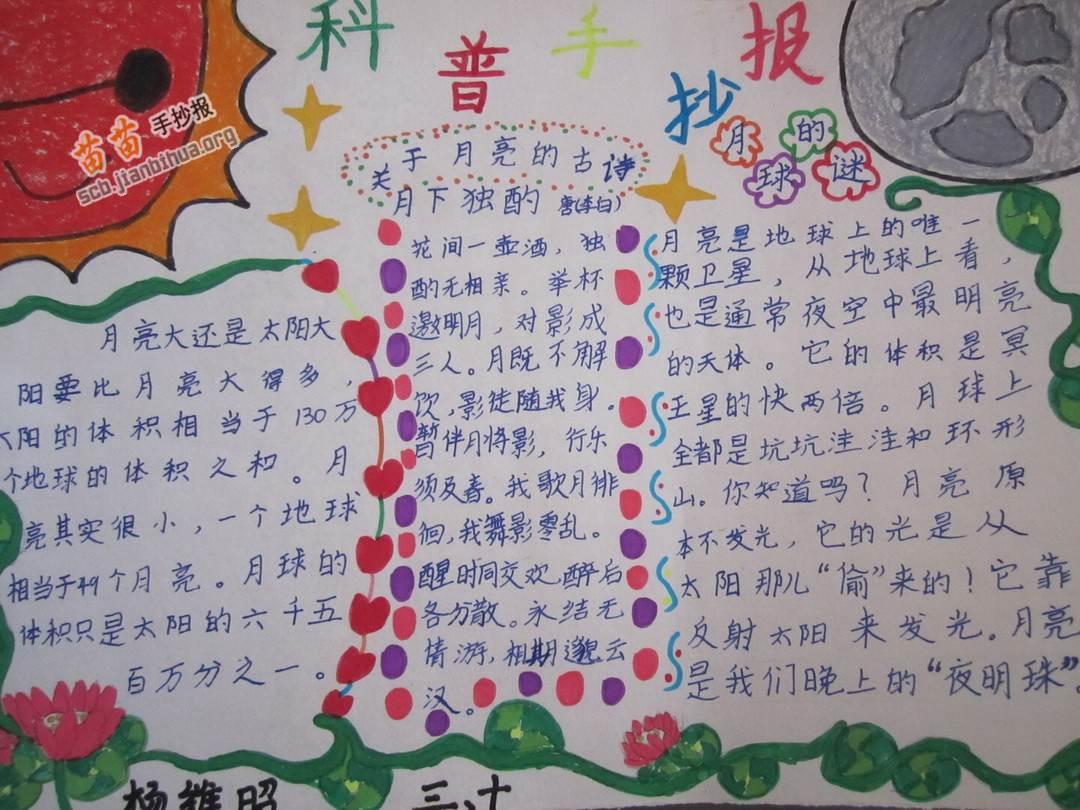 科普手抄报
苗苗手抄报
scb.jianbihua.org
月球的谜
关于月亮的古诗
月下独酌 唐(李白)
花间一壶酒，独
酌无相亲。举杯
邀明月，对影成
三人。月既不解
饮，影徒随我身。
暂伴月将影，行乐
须及春。我歌月徘
徊，我舞影零乱。
醒时同交欢，醉后
各分散。永结无
情游，相期邈云
汉。
月亮大还是太阳大
阳要比月亮大得多，
太阳的体积相当于130万
个地球的体积之和。月
亮其实很小，一个地球
相当于49个月亮。月球的
体积只是太阳的六千五
百万分之一。
月亮是地球上的唯一
颗卫星，从地球上看，
也是通常夜空中最明亮
的天体。它的体积是冥
王星的快两倍。月球上
全都是坑坑洼洼和环形
山。你知道吗？月亮原
本不发光，它的光是从
太阳那儿“偷”来的！它靠
反射太阳来发光。月亮
是我们晚上的“夜明珠”。
杨雅昭
三、十